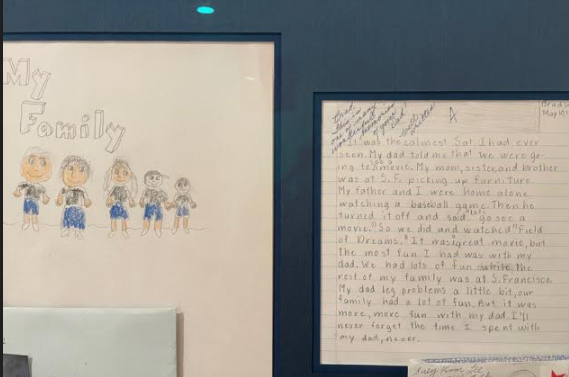 My
Family
Brad,
This is
one of many
wonderful
memories
of your
Dad
well
written
A
Brad
May 10,
It was the calmest Sat I had ever
seen. My dad told me that we were go-
ing to see a movie. My mom, sister, and brother
was at S.F. picking up furniture.
My father and I were home alone
watching a baseball game. Then he
turned it off and said "let's go see a
movie." So we did and watched "Field
of Dreams." It was a great movie, but
the most fun I had was with my
dad. We had lots of fun while the
rest of my family was at S. Francisco.
My dad leg problems a little bit, our
family had a lot of fun. But it was
more, more fun with my dad. I'll
never forget the time I spent with
my dad, never.
Kim